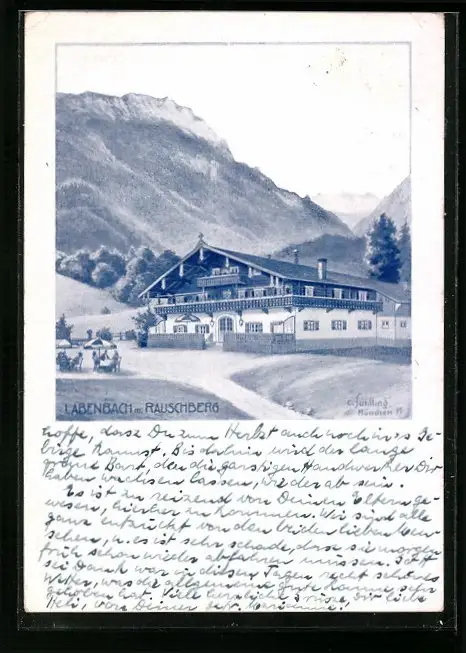 LABENBACH m. RAUSCHBERG
München
hoffe, dass Du zum Herbst auch noch ins Ge-
birge kannst. Bis dahin wird der lange
Bart, den die garstigen Handwerker Dir
haben wachsen lassen, wieder ab sein.
Es ist zu reizend von Deinen Eltern ge-
wesen, hierher zu kommen. Wir sind alle
ganz entzückt von den beiden lieben Men-
schen, u. es ist sehr schade, dass sie morgen
früh schon wieder abfahren müssen. Gott
sei Dank war in diesen Tagen recht schönes
Wetter, was die allgemeine gute Laune sehr
gehoben hat. Viele herzliche Grüsse, Dir liebe
Heli, von Deiner